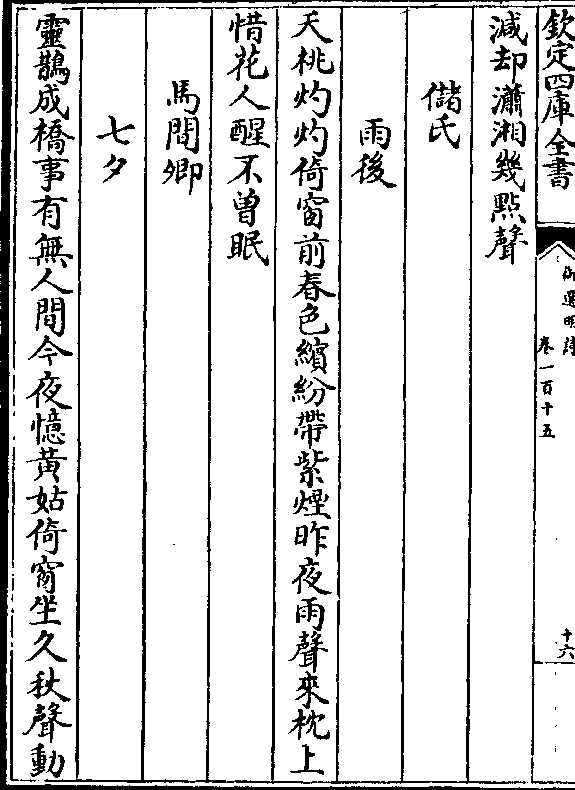 欽定四庫全書
御選明詩
卷一百十五
十六
減却瀟湘幾點聲
儲氏
雨後
夭桃灼灼倚窗前春色繽紛帶紫煙昨夜雨聲來枕上
惜花人醒不曽眠
馬閒卿
七夕
靈鵲成橋事有無人間今夜憶黃姑倚窗坐久秋聲動